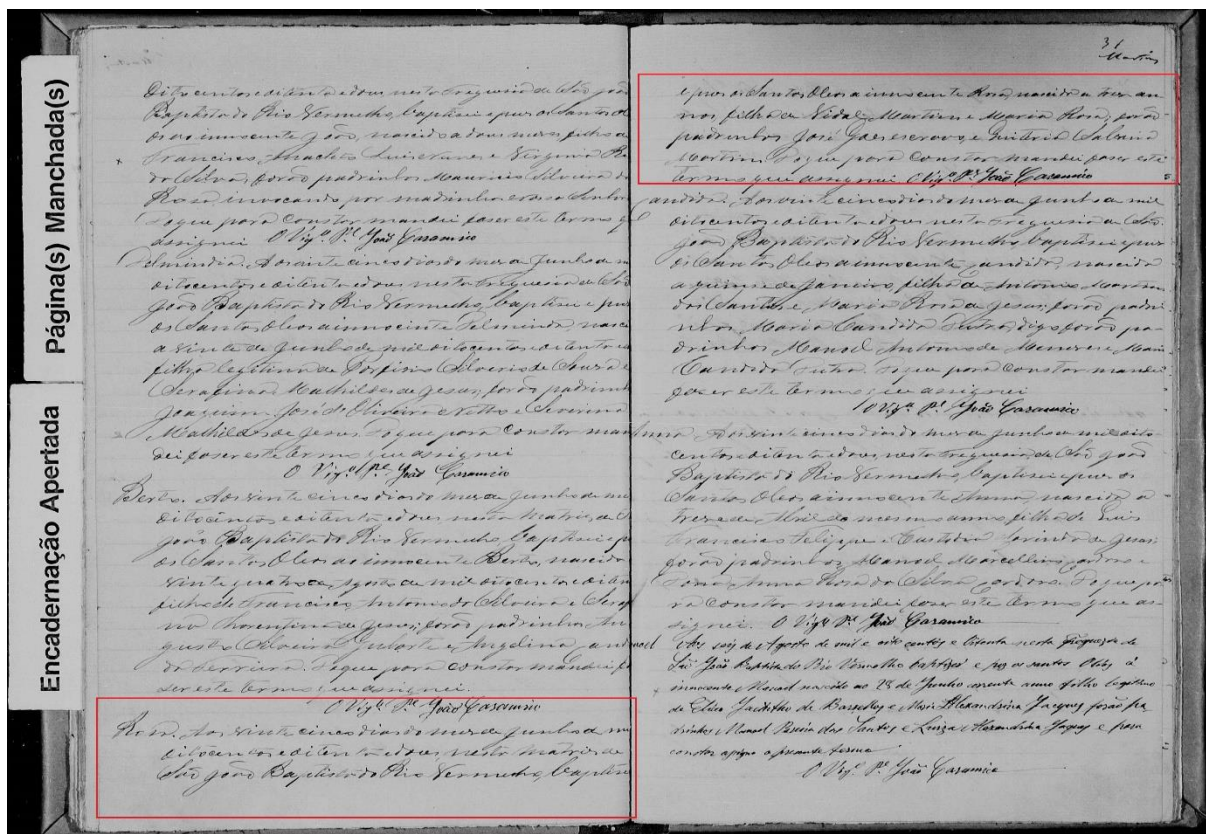 Página(s) Manchada(s)
Encadernação Apertada
oitocentos e oitenta e dous nesta Freguesia de São João
Baptista do Rio Vermelho, baptisei e pus os Santos Ol
eos ao innocente João, nascido a dous meses, filho de
Francisco Luis e Virginia R
da Silva, forão padrinhos Mauricio Silveira da
Rosa invocando por madrinha Nossa Senhora
Do que para constar mandei faser este termo q
assignei O Vigº Pe João Casanuio
Aos vinte cinco dias do mes de Junho de m
oitocentos e oitenta e dous nesta Freguesia de São
João Baptista do Rio Vermelho, baptisei e pus
os Santos Oleos a innocente nasci
a vinte de Junho de mil oitocentos e oitenta e
filha legitima de Porfirio Silverio de Souza e
Serafina Mathildes de Jesus, forão padrinh
Joaquim José de Oliveira e Severina
Mathildes de Jesus. Do que para constar man
dei faser este termo que assignei
O Vigº Pe João Casanuio
Berto. Aos vinte cinco dias do mes de Junho de m
oitocentos e oitenta e dous nesta Matriz de S
João Baptista do Rio Vermelho, baptisei e p
os Santos Oleos ao innocente Berto, nascido
vinte quatro de Agosto de mil oitocentos e oiten
filho de Francisco Antonio da Silveira e Sera
Florentina de Jesus, forão padrinhos, Au
gusto Silveira e Angelina
da Ferreira. Do que para constar mandei f
ser este termo que assignei.
O Vigº Pe João Casanuio
Rosa. Aos vinte cinco dias do mes de Junho de m
oitocentos e oitenta e dous nesta Matriz de
São João Baptista do Rio Vermelho, baptisei
31
Martins
e pus os Santos Oleos a innocente Rosa, nascida a tres an
nos filha de Vidal Martins e Maria Rosa, forão
padrinhos José escravo, e Quiteria
Martins. Do que para constar mandei faser este
termo que assignei O Vigº Pe João Casanuio
Candida. Aos vinte cinco dias do mes de Junho de mil
oitocentos e oitenta e dous nesta Freguesia de São
João Baptista do Rio Vermelho, baptisei e pus
os Santos Oleos a innocente Candida, nascida
a quinse de Janeiro, filha de Antonio Martins
dos Santos e Maria Rosa de Jesus, forão padri
nhos, Maria Candida Dutra, digo forão pa
drinhos Manoel Antonio de Meneses e Maria
Candida Dutra. Do que para constar mandei
faser este termo que assignei
O Vigº Pe João Casanuio
Anna Aos vinte cinco dias do mes de Junho de mil oito
centos e oitenta e dous, nesta Freguesia de São João
Baptista do Rio Vermelho, baptisei e pus os
Santos Oleos a innocente Anna, nascida a
trese de Abril do mesmo anno, filha de Luis
Francisco Felippe e Custodia Lorinda de Jesus,
forão padrinhos, Manoel Marcellino e
Anna Rosa da Silva. Do que pa
ra constar mandei faser este termo que as
signei. O Vigº Pe João Casanuio
Manoel Aos seis de Agosto de mil e oito centos e oitenta nesta Freguezia de
São João Baptista do Rio Vermelho baptisei e puz os santos Oleos á
innocente Manoel nascido ao 28 de Junho corrente anno filho legitimo
de de Barcellos e Maria Alexandrina Jacques forão pa
drinhos Manoel Pereira dos Santos e Luiza Alexandrina Jaques e para
constar assigno o presente termo
O Vigº Pe João Casanuio